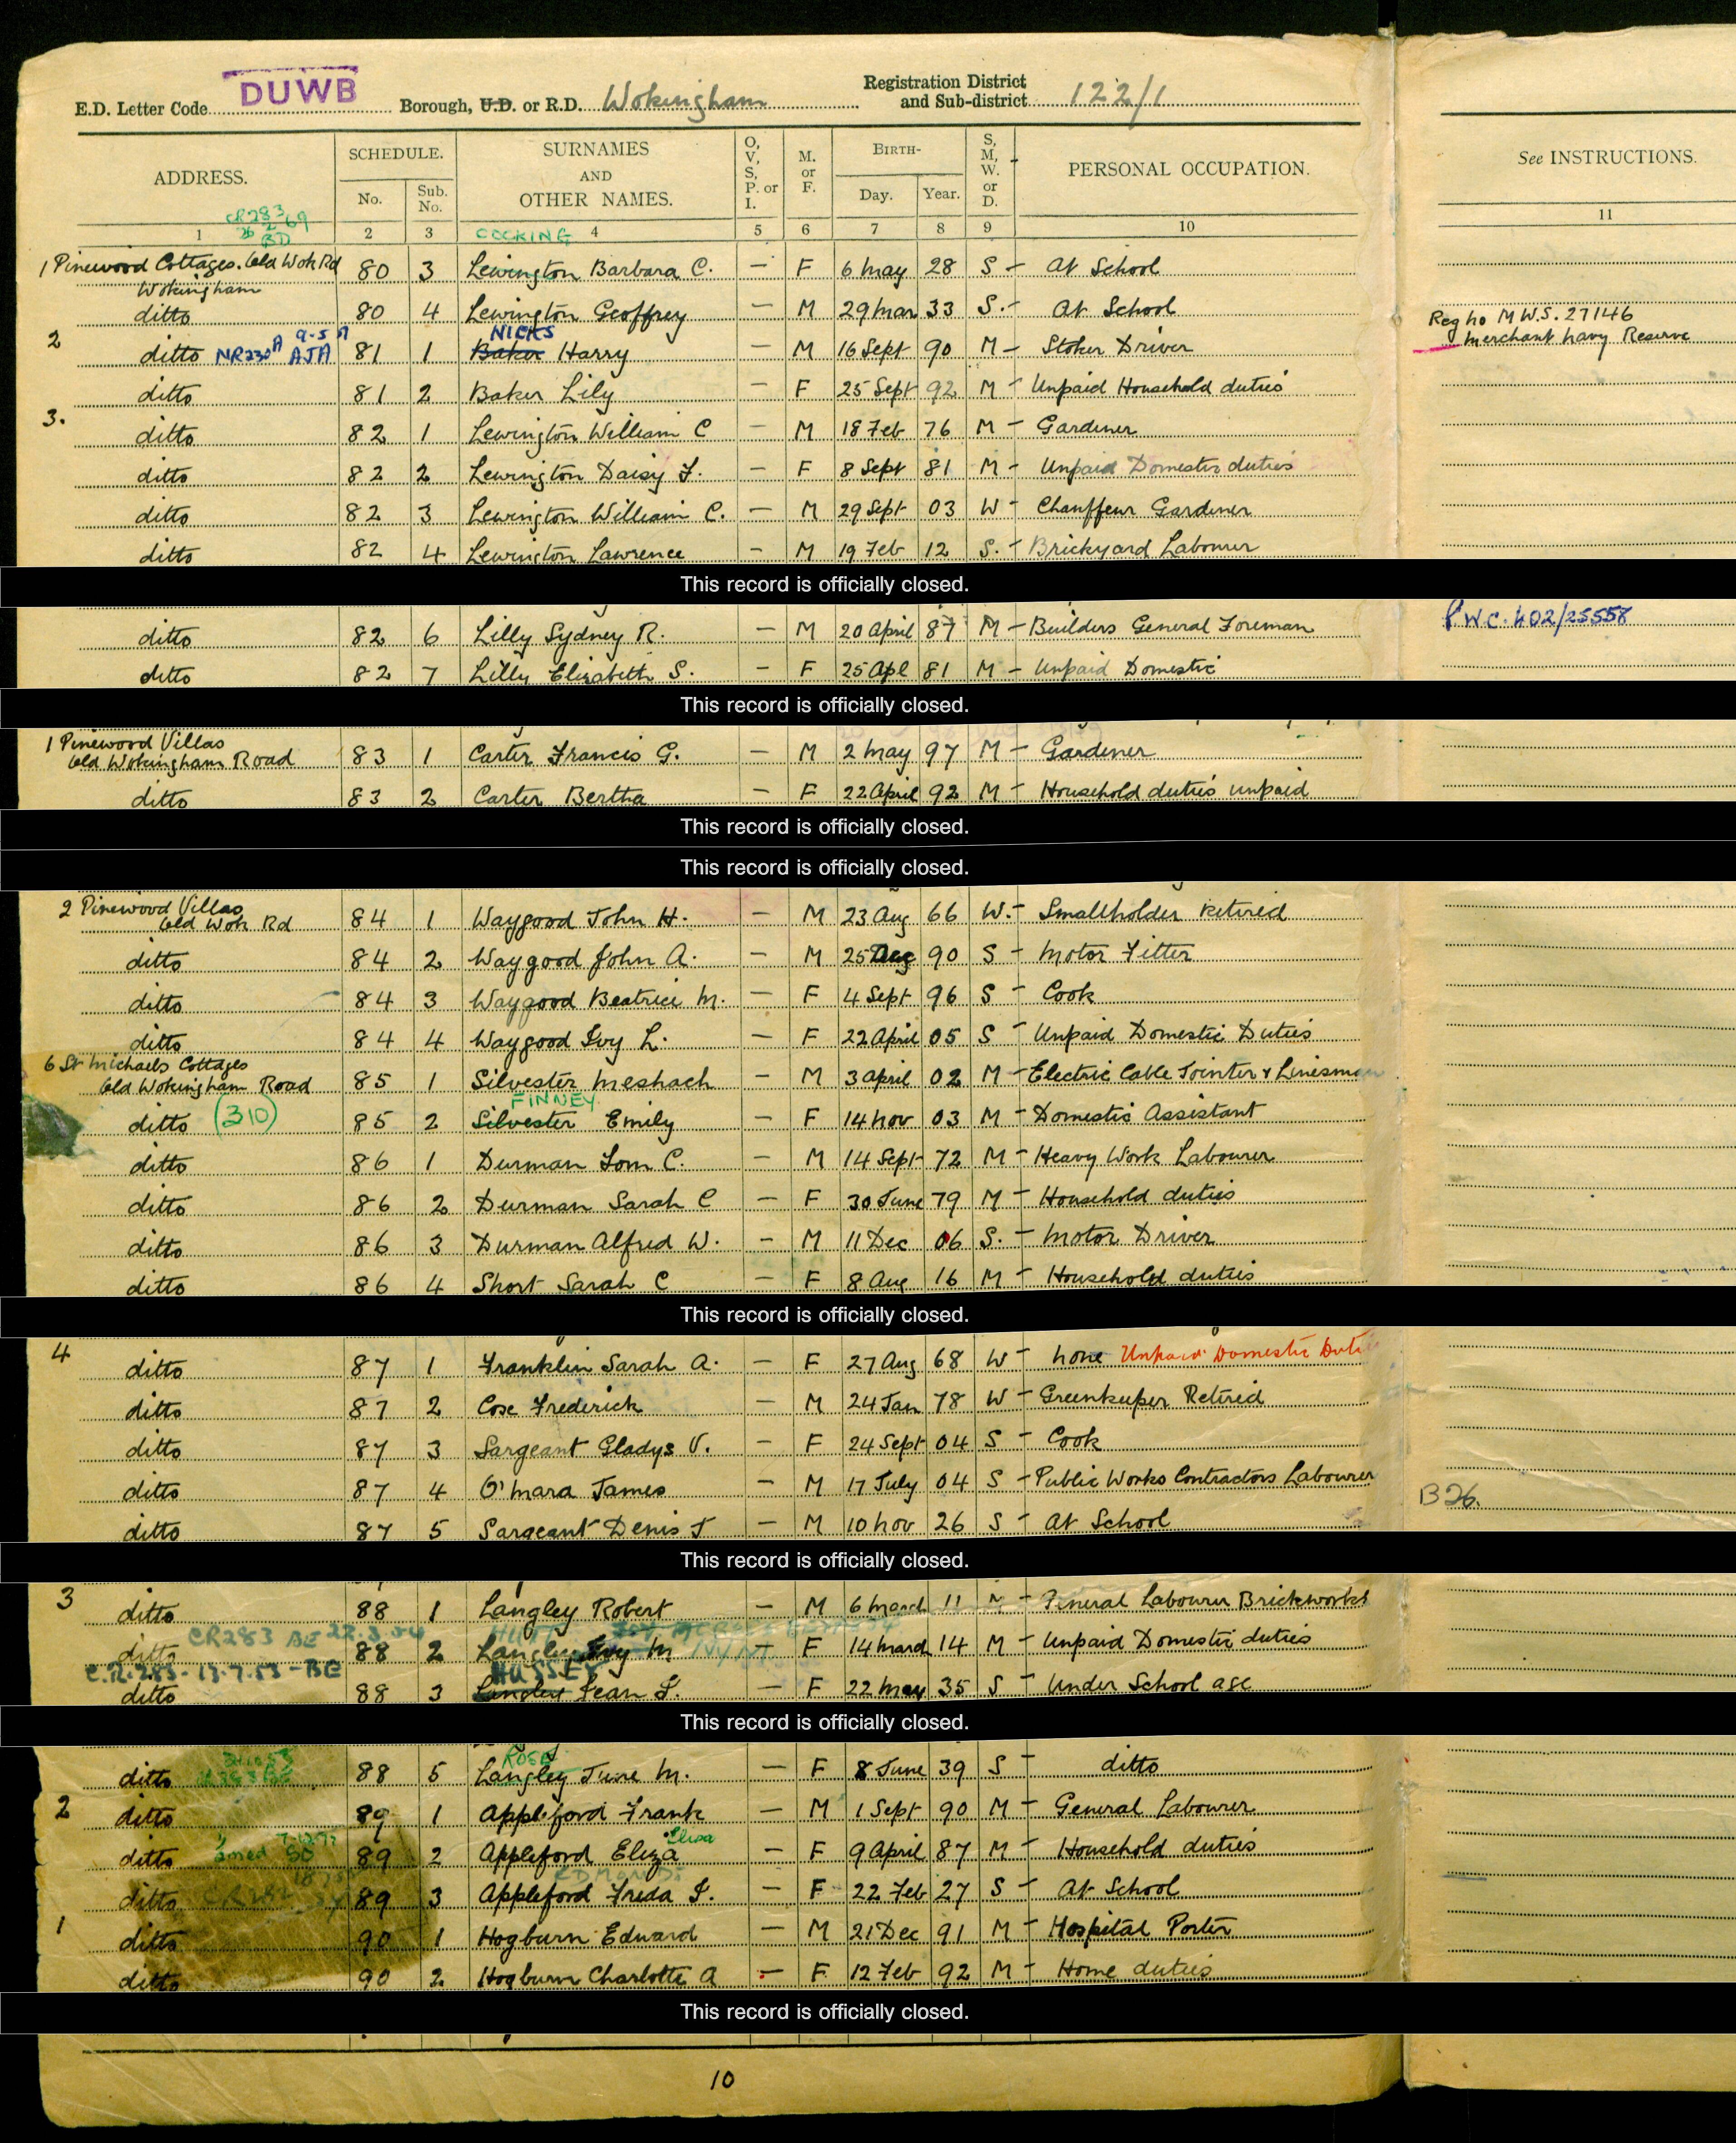 E.D. Letter Code DUWB Borough, U.D. or R.D. Wokingham Registration District and Sub-district 122/1
ADDRESS. SCHEDULE. No. Sub. No. SURNAMES AND OTHER NAMES. O, V, S, P. or I. M. or F. BIRTH- Day. Year. S, M, W. or D. PERSONAL OCCUPATION. See INSTRUCTIONS.
CR283 69
BD
1 2 3 4 5 6 7 8 9 10 11
COCKING
1 Pinewood Cottages. Old Wok Rd 80 3 Lewington Barbara C. — F 6 May 28 S - At School
Wokingham
ditto 80 4 Lewington Geoffrey — M 29 Mar 33 S. - At School
Reg no M.W.S. 27146
Merchant Navy Reserve
NICKS
2 ditto NR230A 9-5 AJA 81 1 Baker Harry — M 16 Sept 90 M - Stoker Driver
ditto 81 2 Baker Lily — F 25 Sept 92 M - Unpaid Household duties
3. ditto 82 1 Lewington William C — M 18 Feb 76 M - Gardener
ditto 82 2 Lewington Daisy F. — F 8 Sept 81 M - Unpaid Domestic duties
ditto 82 3 Lewington William C. — M 29 Sept 03 W - Chauffeur Gardener
ditto 82 4 Lewington Lawrence - M 19 Feb 12 S. - Brickyard Labourer
This record is officially closed.
ditto 82 6 Lilly Sydney R. - M 20 April 87 M - Builders General Foreman P.W.C. 402/25558
ditto 82 7 Lilly Elizabeth S. - F 25 Apl 81 M - Unpaid Domestic
This record is officially closed.
1 Pinewood Villas
Old Wokingham Road 83 1 Carter Francis G. — M 2 May 97 M - Gardener
ditto 83 2 Carter Bertha — F 22 April 92 M - Household duties unpaid
This record is officially closed.
This record is officially closed.
2 Pinewood Villas
Old Wok Rd 84 1 Waygood John H. — M 23 Aug 66 W. - Smallholder retired
ditto 84 2 Waygood John A. — M 25 Aug 90 S - Motor Fitter
ditto 84 3 Waygood Beatrice M. — F 4 Sept 96 S - Cook
ditto 84 4 Waygood Ivy L. — F 22 April 05 S - Unpaid Domestic Duties
6 St Michaels Cottages
Old Wokingham Road 85 1 Silvester Meshach — M 3 April 02 M - Electric Cable Jointer & Linesman
FINNEY
ditto (310) 85 2 Silvester Emily — F 14 Nov 03 M - Domestic Assistant
ditto 86 1 Durman Tom C. — M 14 Sept 72 M - Heavy Work Labourer
ditto 86 2 Durman Sarah C — F 30 June 79 M - Household duties
ditto 86 3 Durman Alfred W. — M 11 Dec 06 S. - Motor Driver
ditto 86 4 Short Sarah C — F 8 Aug 16 M - Household duties
This record is officially closed.
4 ditto 87 1 Franklin Sarah A. — F 27 Aug 68 W - None Unpaid Domestic Duti
ditto 87 2 Cox Frederick — M 24 Jan 78 W - Greenkeeper Retired
ditto 87 3 Sargeant Gladys V. — F 24 Sept 04 S - Cook
ditto 87 4 O'Mara James — M 17 July 04 S - Public Works Contractors Labourer B26.
ditto 87 5 Sargeant Denis J — M 10 Nov 26 S - At School
This record is officially closed.
3 ditto 88 1 Langley Robert — M 6 March 11 M - General Labourer Brickworks
CR283 BE 22.3.54 HUTT
ditto 88 2 Langley Ivy M — F 14 March 14 M - Unpaid Domestic duties
C.R.283. 13.7.53 - BE HUSSEY
ditto 88 3 Langley Jean F. — F 22 May 35 S - Under School age
This record is officially closed.
ROSE
ditto 88 5 Langley June M. — F 8 June 39 S - ditto
2 ditto 89 1 Appleford Frank — M 1 Sept 90 M - General Labourer
Elisa
ditto 89 2 Appleford Eliza — F 9 April 87 M - Household duties
ditto 89 3 Appleford Freda F. — F 22 Feb 27 S - At School
1 ditto 90 1 Hogburn Edward — M 21 Dec 91 M - Hospital Porter
ditto 90 2 Hogburn Charlotte A — F 12 Feb 92 M - Home duties
This record is officially closed.
10